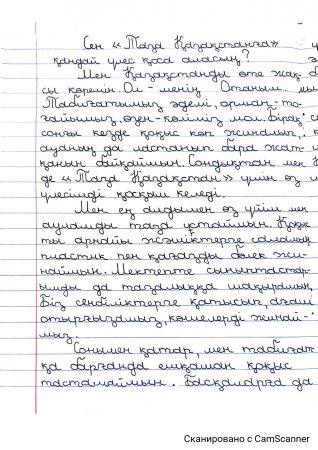 Сен «Таза Қазақстанға»
қандай үлес қоса аласың?
Мен Қазақстанды өте жақ-
сы көремін. Ол - менің Отаным.
Табиғатымыз әдемі, орман-то-
ғайымыз, өзен-көліміз мол. Бірақ
соңғы кезде қоқыс көп жиналып,
ауаның да ластанып бара жат-
қанын байқаймын. Сондықтан мен
де «Таза Қазақстан» үшін өз
үлесімді қосқым келеді.
Мен ең алдымен өз үйім мен
ауламды таза ұстаймын. Қоқыс-
ты арнайы жәшіктерге саламын,
пластик пен қағазды бөлек жи-
наймын. Мектепте сыныптастар-
ымды да тазалыққа шақырамын.
Біз сенбіліктерге қатысып, ағаш
отырғызамыз, көшелерді жинай-
мыз.
Сонымен қатар, мен табиғат-
қа барғанда ешқашан қоқыс
тастамаймын. Басқаларға да
Сканировано с CamScanner